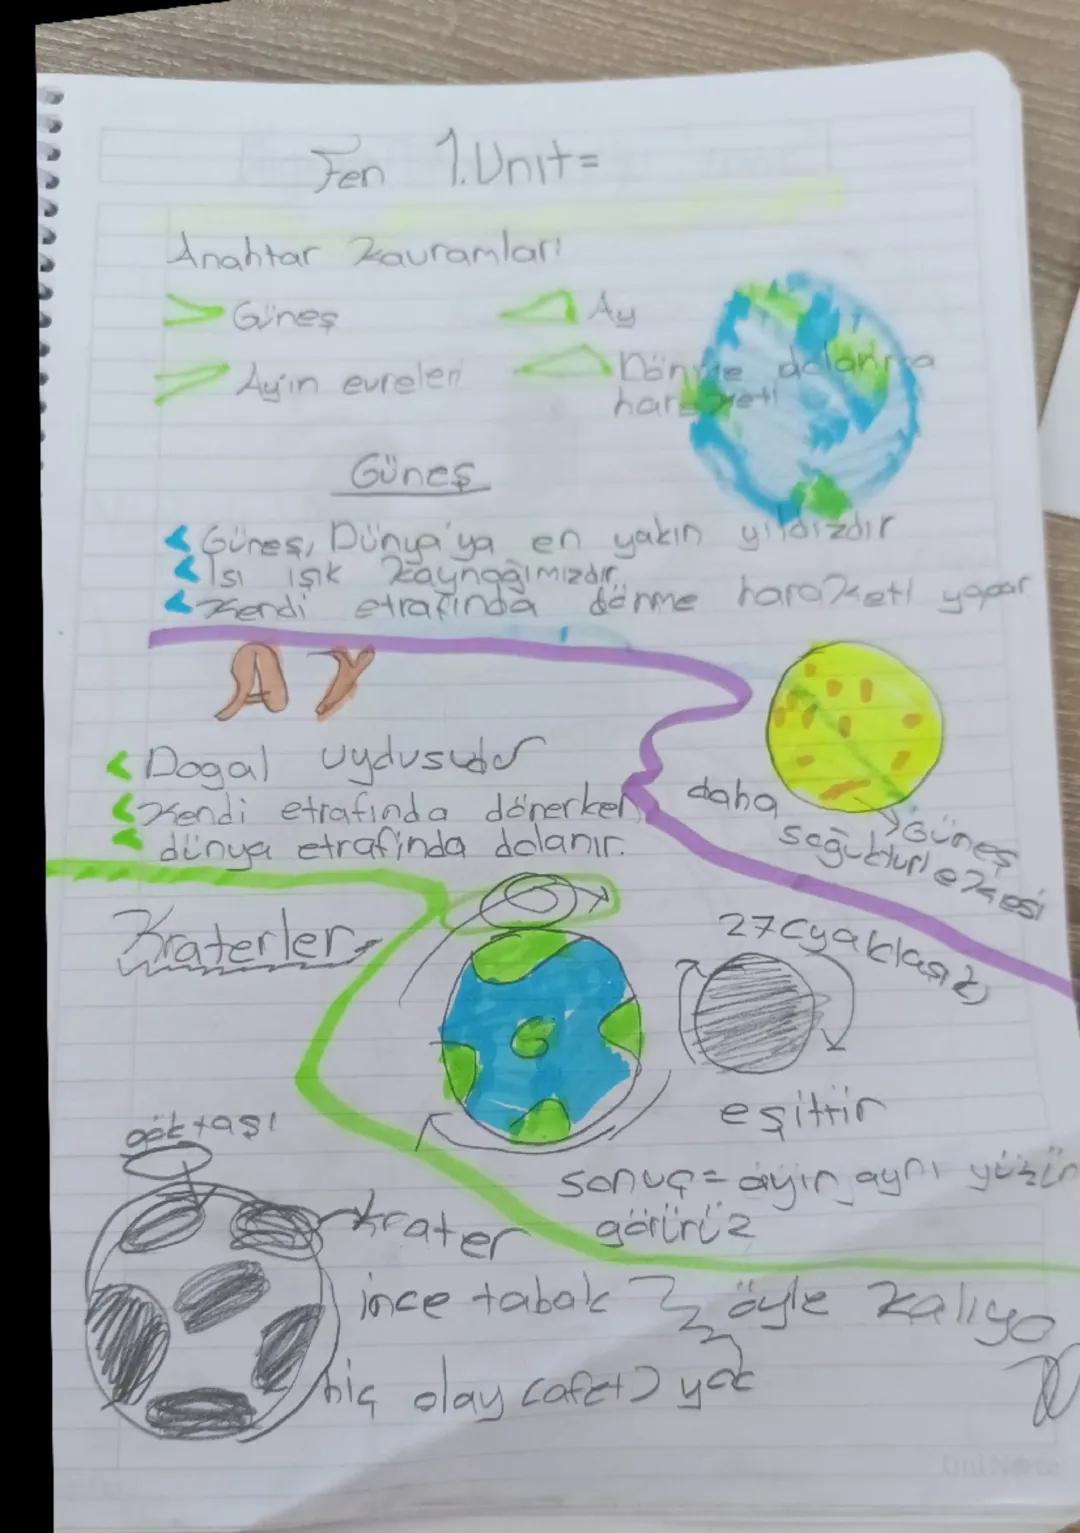 Fen 1.Unit=
Anahtar Kavramları
Güneş
Ay
Ay'ın evreleri
Dönme dolanma
hareketi
Güneş
Güneş, Dünya'ya en yakın yıldızdır
Isı ışık kaynağımızdır.
Kendi etrafında dönme haraketi yapar
AY
Dogal uydusudur
Kendi etrafında dönerken
dünya etrafında dolanır.
daha
soğuktur
Güneş
lekesi
Kraterler
27 (yaklaşık)
eşittir
sonuç= ayın aynı yüzün
görürüz
göktaşı
krater
ince tabak öyle kalıyo
hiç olay (afet) yok
UniNote